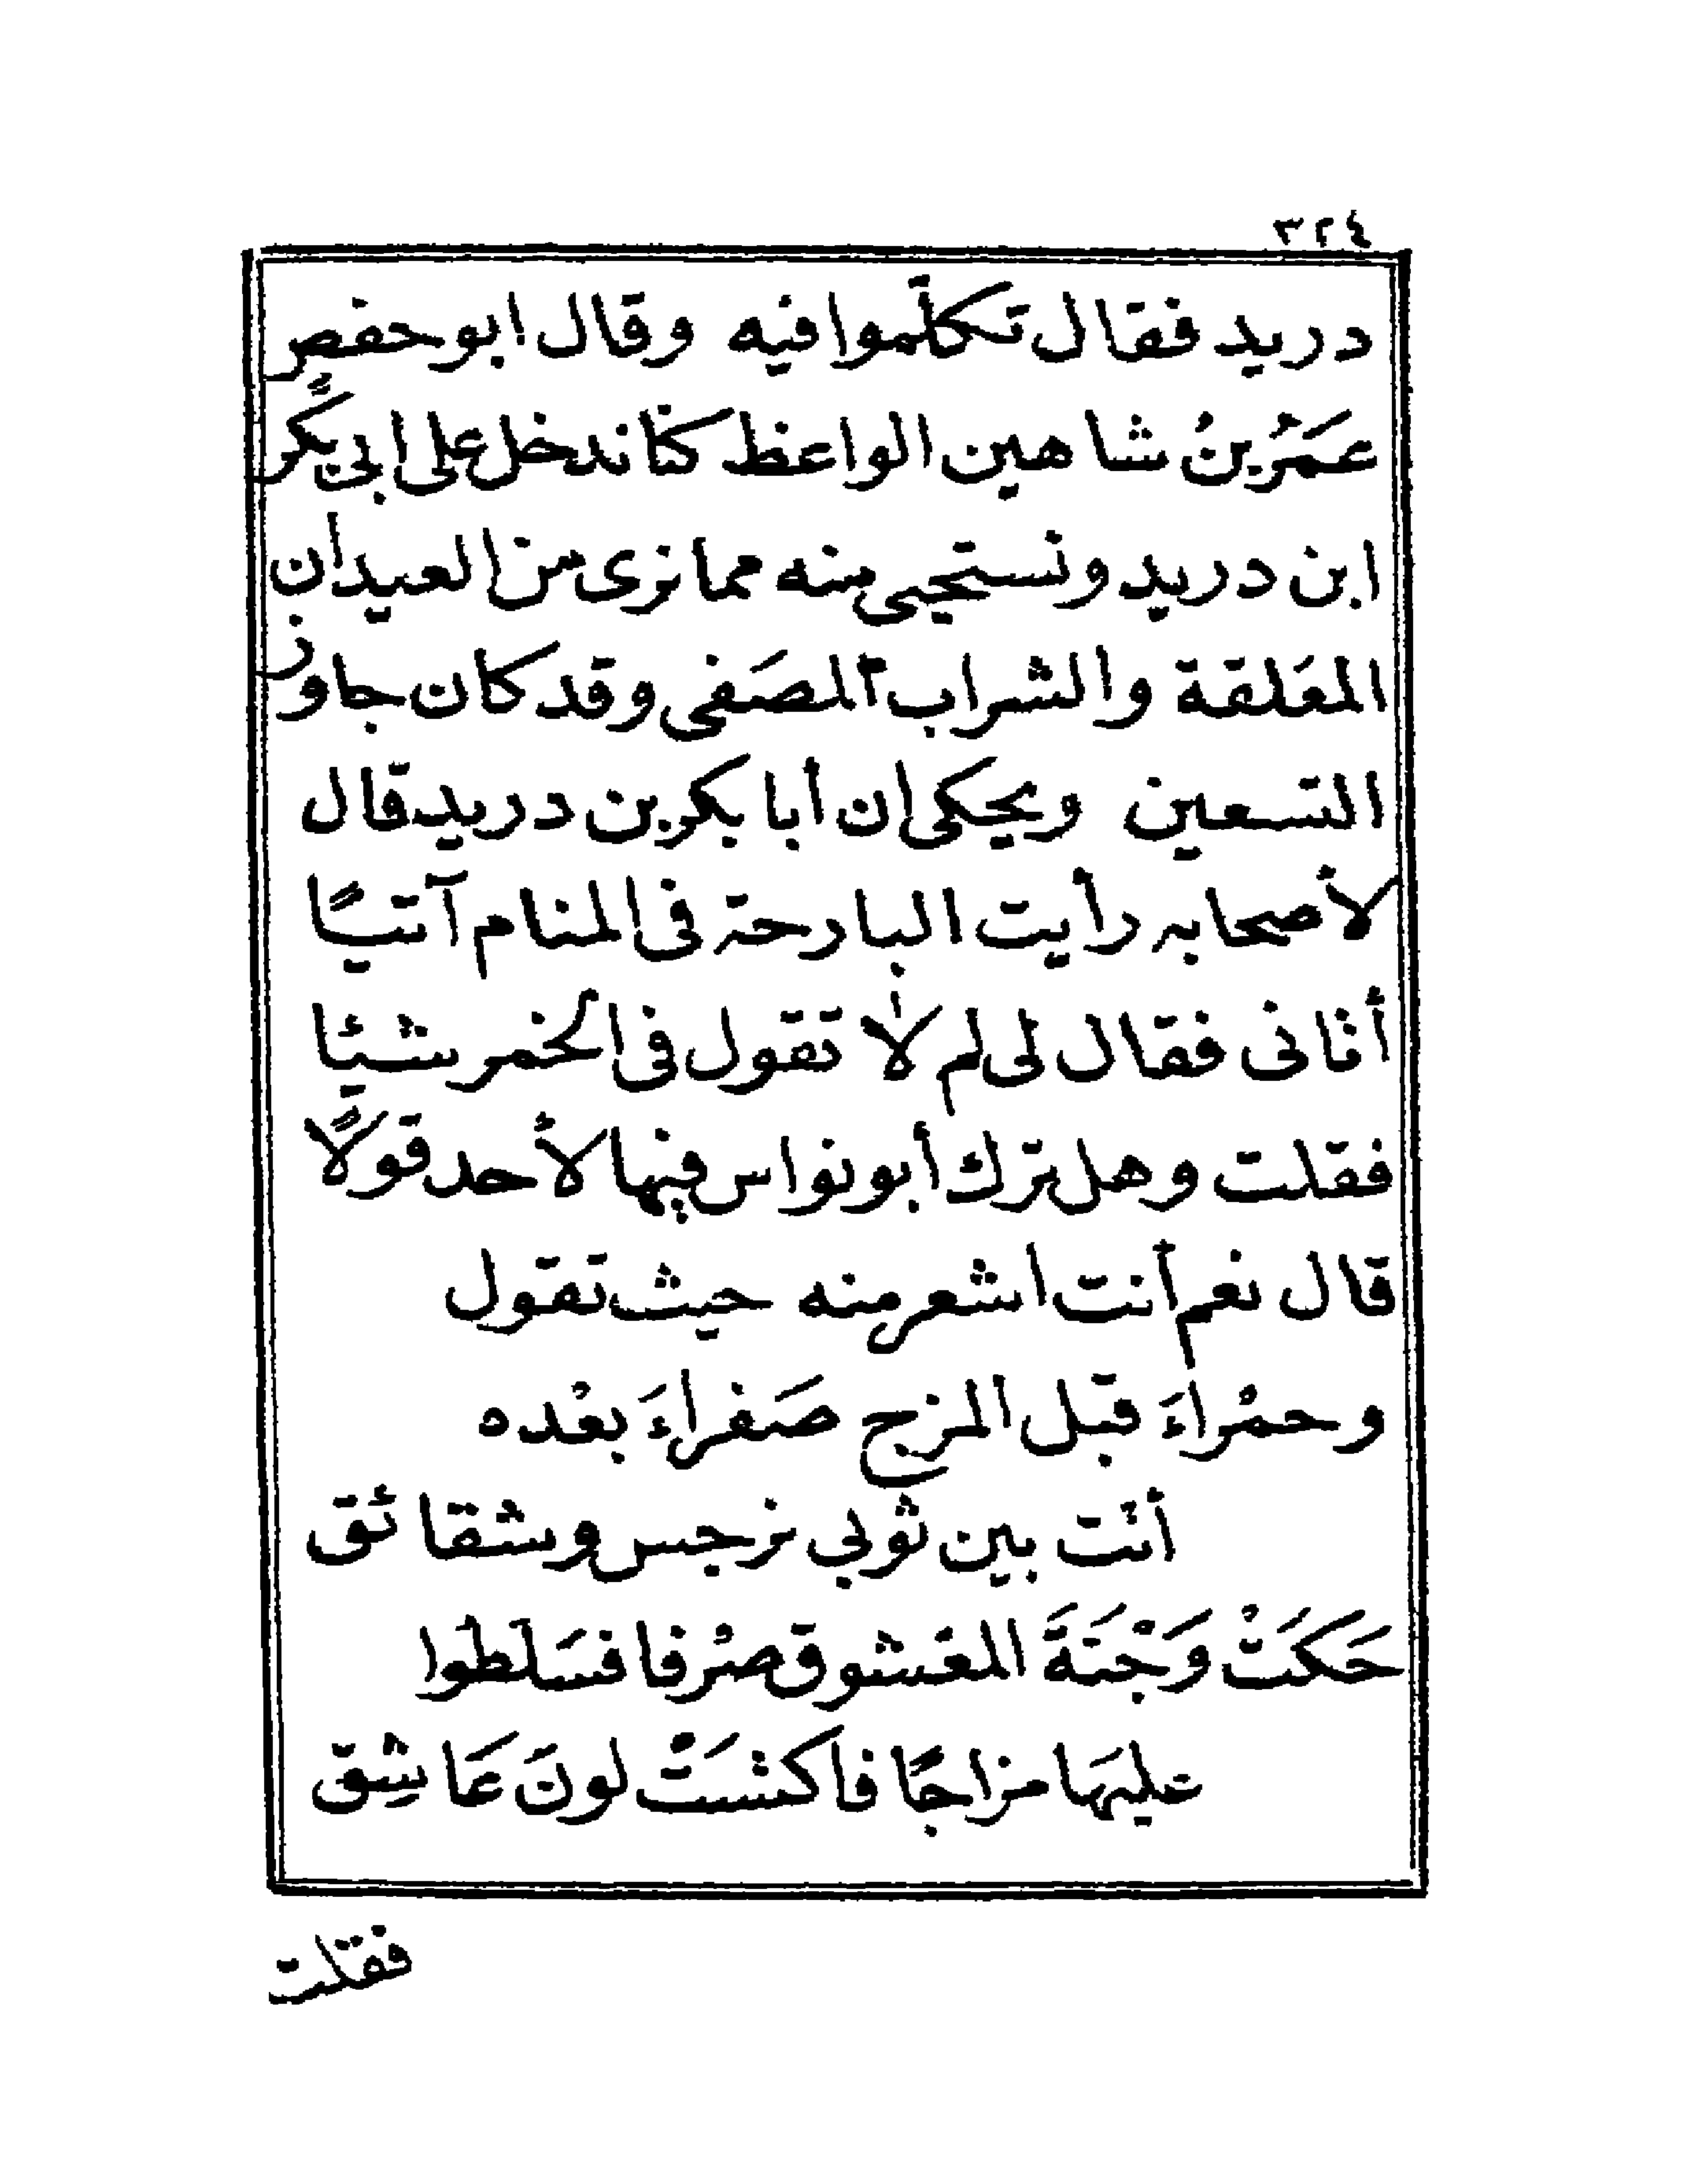 ٣٢٤
دريد فقال تكلّموا فيه وقال ابو حفص
عَمَرُ بنُ شاهين الواعظ كنّا ندخل على ابى بكرٍ
ابن دريد ونستحيى منه مما نرى من العيدان
المعَلقة والشراب المصَفى وقد كان جاوز
التسعين ويحكى ان أبا بكر بن دريد قال
لأصحابه رأيت البارحة فى المنام آتيًا
أتانى فقال لى لم لا تقول فى الخمر شيئا
فقلت وهل ترك أبو نواس فيها لأحد قولًا
قال نعم أنت اشعر منه حيث تقول
وحمْراءَ قبل المزج صَفراءَ بعْده
أتت بين ثوبي نرجس وشقائق
حَكَتْ وَجْنَةَ المعْشوق صرْفا فسَلَطوا
عليهَا مزاجًا فاكتسَتْ لونَ عَاشِق
فقلت